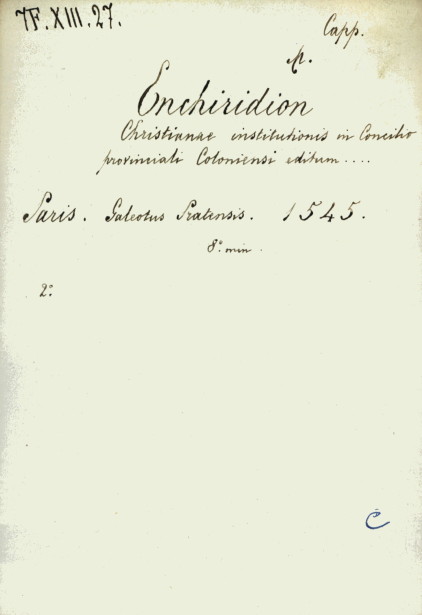 7F.XIII.27.
Capp.
M.
Enchiridion
Christianae institutionis in Concilio
provinciali Coloniensi editum....
Paris. Galeotus Pratensis. 1545.
8° min.
2°
C